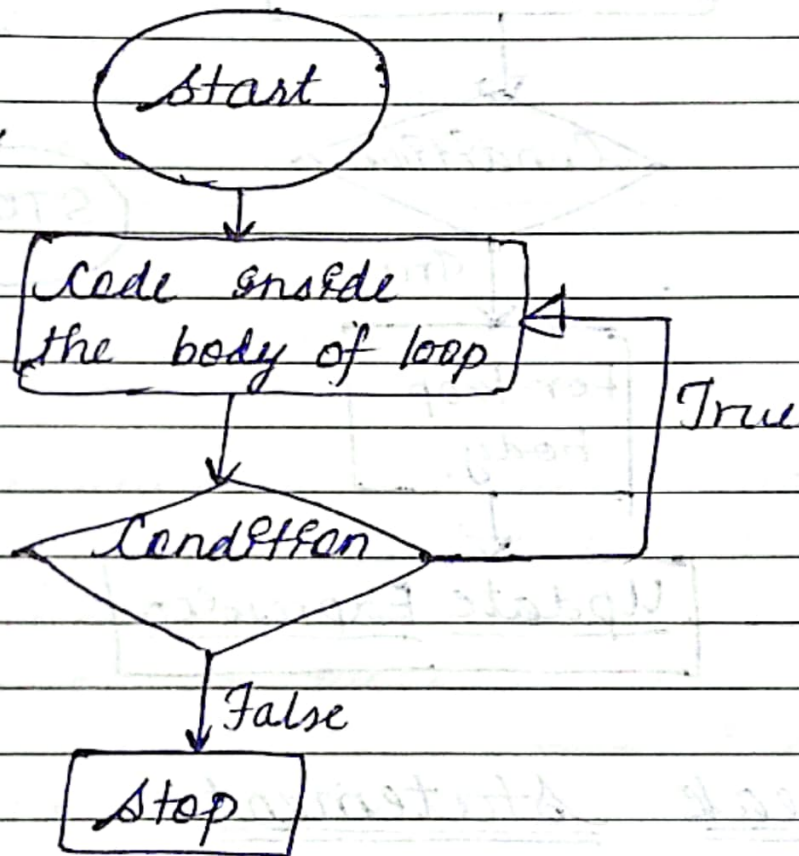 Start
Code inside
the body of loop
True
Condition
False
Stop